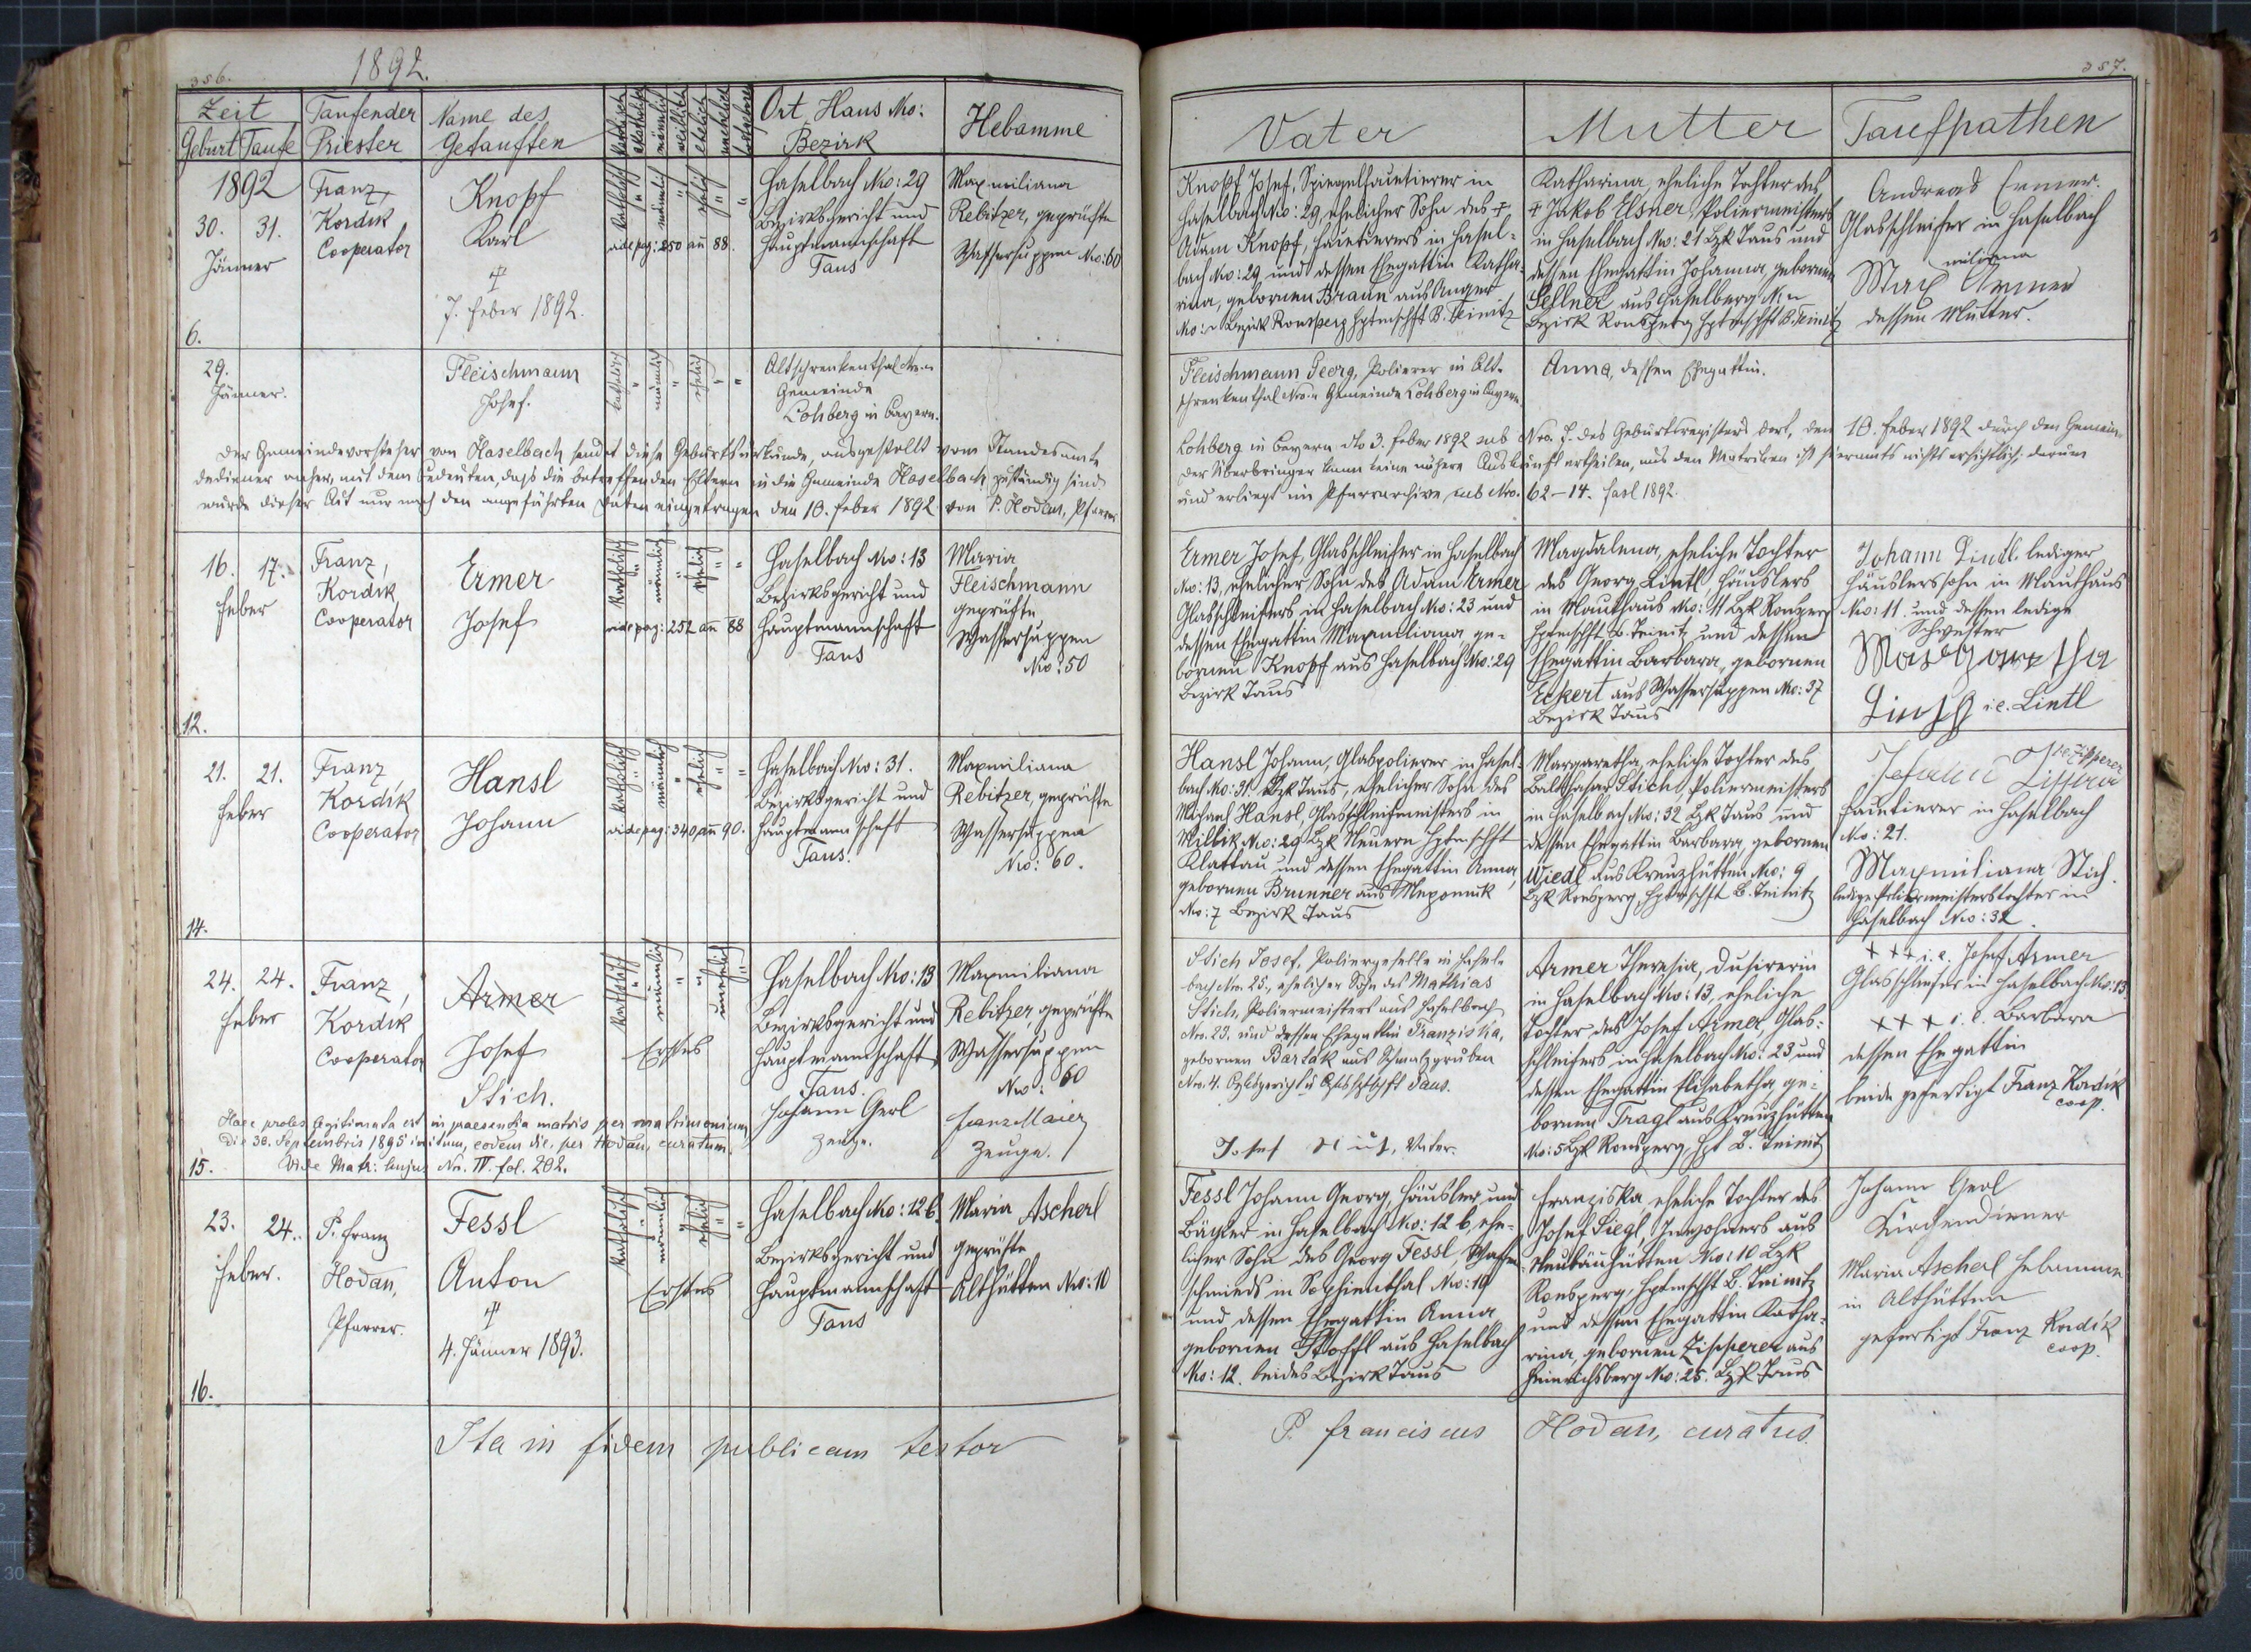 356.
1892.
Zeit
Geburt Taufe
Taufender
Priester
Name des
Getauften
katholisch
akatholisch
männlich
weiblich
ehelich
unehelich
Ort, Haus No:
Bezirk
Hebamme
1892
30. 31.
Jänner
6.
Franz
Kordik
Cooperator
Knopf
Karl
7. Feber 1892.
katholisch
männlich
ehelich
vide pag: 250 an 88.
Haselbach No: 29
Bezirksgericht und
Hauptmannschaft
Taus
Maxmiliana
Rebitzer, geprüfte
Wassersuppen No: 60
29.
Jänner.
Fleischmann
Josef.
katholisch
männlich
ehelich
Altschrenkenthal
Gemeinde
Lohberg in Bayern.
Der Gemeindevorsteher von Haselbach sendet diese Geburtsurkunde, ausgestellt vom Standesamte
dediener anher, mit dem Bedeuten, daß die betreffenden Eltern in die Gemeinde Haselbach zuständig sind
wurde dieser Akt nur nach den angeführten Daten eingetragen den 10. Feber 1892 von P. Hodan, Pfarrer
16. 17.
Feber
12.
Franz,
Kordik
Cooperator
Ermer
Josef
katholisch
männlich
ehelich
vide pag: 252 an 88
Haselbach No: 13
Bezirksgericht und
Hauptmannschaft
Taus
Maria
Fleischmann
geprüfte
Wassersuppen
No: 50
21. 21.
Feber
14.
Franz
Kordik
Cooperator
Hansl
Johann
katholisch
männlich
ehelich
vide pag: 340 an 90.
Haselbach No: 31.
Bezirksgericht und
Hauptmannschaft
Taus.
Maxmiliana
Rebitzer, geprüfte
Wassersuppen
No: 60.
24. 24.
Feber
Franz,
Kordik
Cooperator
Armer
Josef
Stich.
katholisch
männlich
unehelich
Erstes
Haselbach No: 13
Bezirksgericht und
Hauptmannschaft
Taus.
Johann Gerl
Zeuge.
Maxmiliana
Rebitzer, geprüfte
Wassersuppen
No: 60
Franz Maier
Zeuge.
Haec proles legitimata est in praesentia matris per matrimonium
die 30. Septembris 1895 initum, eodem die, per Hodan, curatum.
Vide Matr: hujus No. IV. fol. 202.
15.
23. 24.
Feber.
16.
P. Franz
Hodan,
Pfarrer.
Fessl
Anton
4. Jänner 1893.
katholisch
männlich
ehelich
Erstes
Haselbach No: 12 b
Bezirksgericht und
Hauptmannschaft
Taus
Maria Ascherl
geprüfte
Althütten No: 10
Ita in fidem publicam testor
357.
Vater
Mutter
Taufpathen
Knopf Josef, Spiegelhausierer in
Haselbach No: 29, ehelicher Sohn des +
Adam Knopf, Hausierers in Hasel-
bach No: 29 und dessen Ehegattin Katha-
rina, gebornen Braun aus Anger
No: Bezirk Ronsperg Hptmschft B. Teinitz
Katharina, eheliche Tochter des
+ Jakob Elsner, Poliermeisters
in Haselbach No: 21 Bzk Taus und
dessen Ehegattin Johanna, gebornen
Sellner aus Haselberg
Bezirk Ronsperg Hptmschft B. Teinitz
Andreas Ermer.
Glasschleifer in Haselbach
miliana
Max Armer
dessen Mutter.
Fleischmann Georg, Polierer in Alt-
schrenkenthal Gemeinde Lohberg in Bayern
Anna, dessen Ehegattin.
Lohberg in Bayern dto 3. Feber 1892 sub No. 7. des Geburtsregisters dort, den 10. Feber 1892 durch den Gemein-
der Überbringer kann keine nähere Auskunft ertheilen, aus den Matriken ist hieramts nichts ersichtlich; darum
und erliegt im Pfarrarchive sub No. 62-14. Fasl 1892.
Ermer Josef, Glasschleifer in Haselbach
No: 13, ehelicher Sohn des Adam Ermer
Glasschleifers in Haselbach No: 23 und
dessen Ehegattin Maxmiliana ge-
bornen Knopf aus Haselbach No: 29
Bezirk Taus
Magdalena, eheliche Tochter
des Georg Lintl Häuslers
in Mauthaus No: 11 Bzk Ronsperg
Hptmschft B. Teinitz und dessen
Ehegattin Barbara, gebornen
Eckert aus Wassersuppen No: 37
Bezirk Taus
Johann Lintl lediger
Häuslerssohn in Mauthaus
No: 11. und dessen ledige
Schwester
Margaretha
i.e. Lintl
Hansl Johann, Glaspolierer in Hasel-
bach No: 31. Bzk Taus, ehelicher Sohn des
Michael Hansl, Glasschleifmeisters in
Millik No: 29 Bzk Neuern Hptmschft
Klattau und dessen Ehegattin Anna,
gebornen Brunner aus Meponnik
No: 7 Bezirk Taus
Margaretha, eheliche Tochter des
Balthasar Stich Poliermeisters
in Haselbach No: 32 Bzk Taus und
dessen Ehegattin Barbara, gebornen
Wiedl aus Kreuzhütten No: 9
Bzk Ronsperg, Hptmschft B. Teinitz
i.e. Zipperer
Hausierer in Haselbach
No: 21.
Maxmiliana Stich.
ledige Poliermeisterstochter in
Haselbach No: 32
Stich Josef, Poliergeselle in Hasel-
bach No. 25., ehelicher Sohn des Mathias
Stich, Poliermeisters aus Haselbach
No. 23. und dessen Ehegattin Franziska,
gebornen Bartak aus Schmalzgruben
No. 4. Taus.
Josef Stich, Vater.
Armer Theresia, Dusirerin
in Haselbach No: 13, eheliche
Tochter des Josef Armer, Glas-
schleifers in Haselbach No: 23 und
dessen Ehegattin Elisabetha ge-
bornen Tragl aus Kreuzhütten
No: 5 Bzk Ronsperg, Hpt B. Teinitz
+++ i.e. Josef Armer
Glasschleifer in Haselbach No: 13
+++ i.e. Barbara
dessen Ehegattin
beide gefertigt Franz Kordik
coop.
Fessl Johann Georg, Häusler und
Bäcker in Haselbach No: 12 b, ehe-
licher Sohn des Georg Fessl, Waffen-
schmieds in Sophienthal No: 19
und dessen Ehegattin Anna,
gebornen Stoffl aus Haselbach
No: 12. beides Bezirk Taus
Franziska, eheliche Tochter des
Josef Siegl, Inwohners aus
Neubäuhütten No: 10 Bzk
Ronsperg, Hptmschft B. Teinitz
und dessen Ehegattin Katha-
rina, gebornen Zipperer aus
Heinrichsberg No: 25. Bzk Taus
Johann Gerl
Kirchendiener
Maria Ascherl Hebamme
in Althütten
gefertigt Franz Kordik
coop.
P. Franciscus Hodan, curatus.